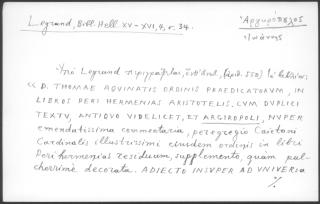 Legrand, Bibl. Hell. XV-XVI, 4, σ. 34.
Ἀργυρόπουλος
Ἰωάννης
Ὑπὸ Legrand περιγράφεται, (ἀριθ. 550) τὸ βιβλίον:
« D. THOMAE AQUINATIS ORDINIS PRAEDICATORUM, IN
LIBROS PERI HERMENIAS ARISTOTELIS. CUM DUPLICI
TEXTU, ANTIQUO VIDELICET, ET ARGIROPOLI, NUPER
emendatissima commentaria, peregregio Caietani
Cardinalis illustrissimi eiusdem ordinis in libri
Peri hermenias residuum, supplemento, quam pul-
cherrime decorata. ADIECTO INSUPER AD UNIVERSA
·/.